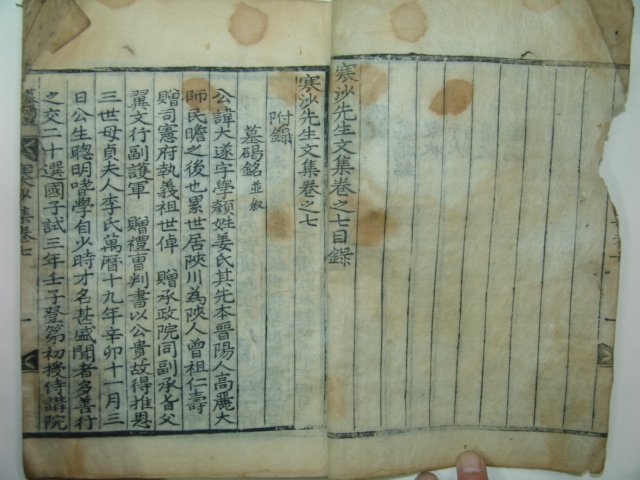 寒沙先生文集卷之七目錄
寒沙先生文集卷之七
附錄
墓碣銘 並叙
公諱大遂字學顏姓姜氏其先本晉陽人高麗大
師民瞻之後也累世居陜川為陜人曾祖仁壽
贈司憲府執義祖世倬 贈承政院同副承旨父
翼文行副護軍 贈禮曹判書以公貴故得推恩
三世母貞夫人李氏萬曆十九年辛卯十一月三
日公生聰明嗜學自少時才名甚盛聞者多善行
之交二十選國子試三年壬子登第初授侍講院
寒沙集卷七
一